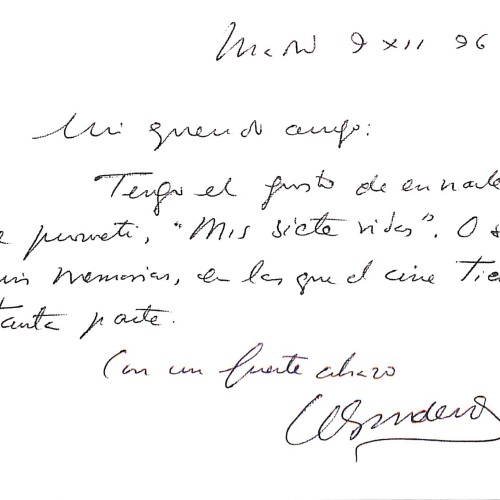 Madrid 9 XII 96
Mi querido amigo:
Tengo el gusto de enviarte
prometí, "Mis siete vidas". O s
mis memorias, en las que el cine tie
tanta parte.
Con un fuerte abrazo